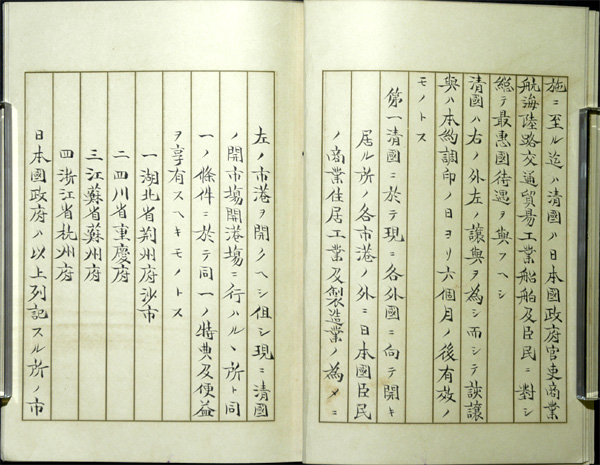 施ニ至ル迄ハ清國ハ日本國政府官吏商業
航海陸路交通貿易工業船舶及臣民ニ對シ
総テ最惠國待遇ヲ與フヘシ
清國ハ右ノ外左ノ讓與ヲ為シ而シテ該讓
與ハ本約調印ノ日ヨリ六個月ノ後有效ノ
モノトス
第一清國ニ於テ現ニ各外國ニ向テ開キ
居ル所ノ各市港ノ外ニ日本國臣民
ノ商業住居工業及製造業ノ為メニ
左ノ市港ヲ開クヘシ但シ現ニ清國
ノ開市塲開港塲ニ行ハルヽ所ト同
一ノ條件ニ於テ同一ノ特典及便益
ヲ享有スヘキモノトス
一湖北省荊州府沙市
二四川省重慶府
三江蘇省蘇州府
四浙江省杭州府
日本國政府ハ以上列記スル所ノ市